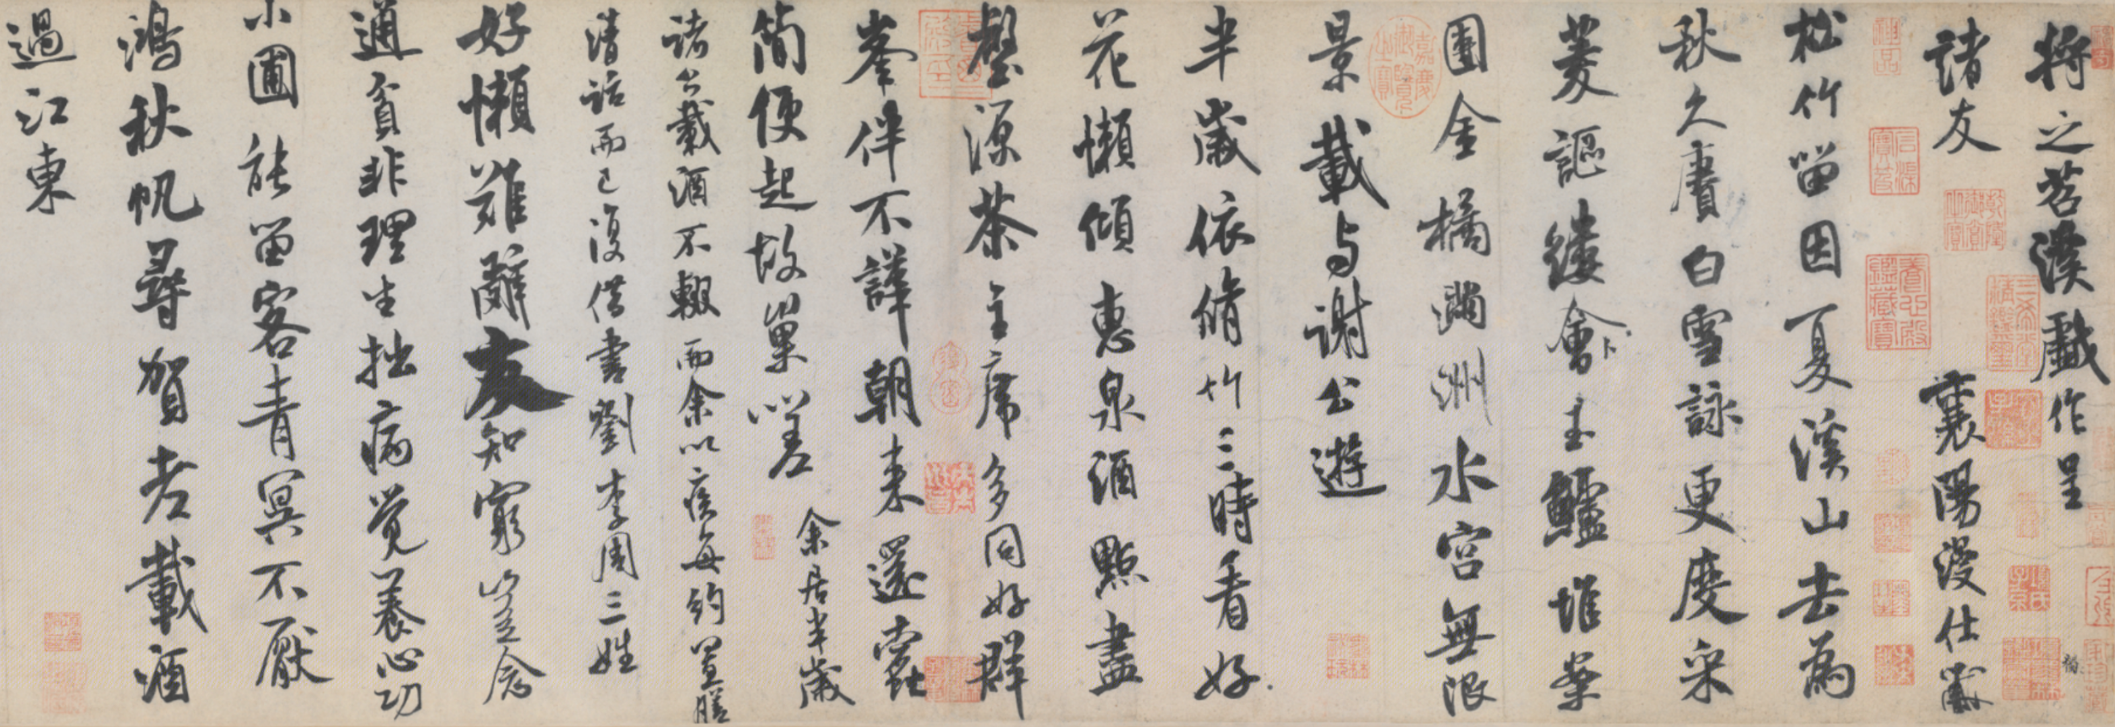 將之苕溪戲作呈
諸友 襄陽漫仕黻
松竹留因夏溪山去為
秋久賡白雪詠更度采
菱謳縷會玉鱸堆案
團金橘滿洲水宮無限
景載与謝公遊
半歲依脩竹三時看好
花懶傾惠泉酒點盡
壑源茶主席多同好群
峯伴不譁朝来還蠹
簡便起故巢嗟
余居半歲
諸公載酒不輟而余以疾每約置膳
清話而已復借書劉李周三姓
好懶難辭友知窮豈念
通貧非理生拙病覺養心功
小圃能留客青冥不厭
鴻秋帆尋賀老載酒
過江東